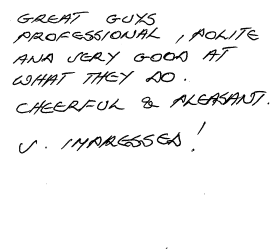 GREAT GUYS
PROFESSIONAL, POLITE
AND VERY GOOD AT
WHAT THEY DO.
CHEERFUL & PLEASANT.
V. IMPRESSED!